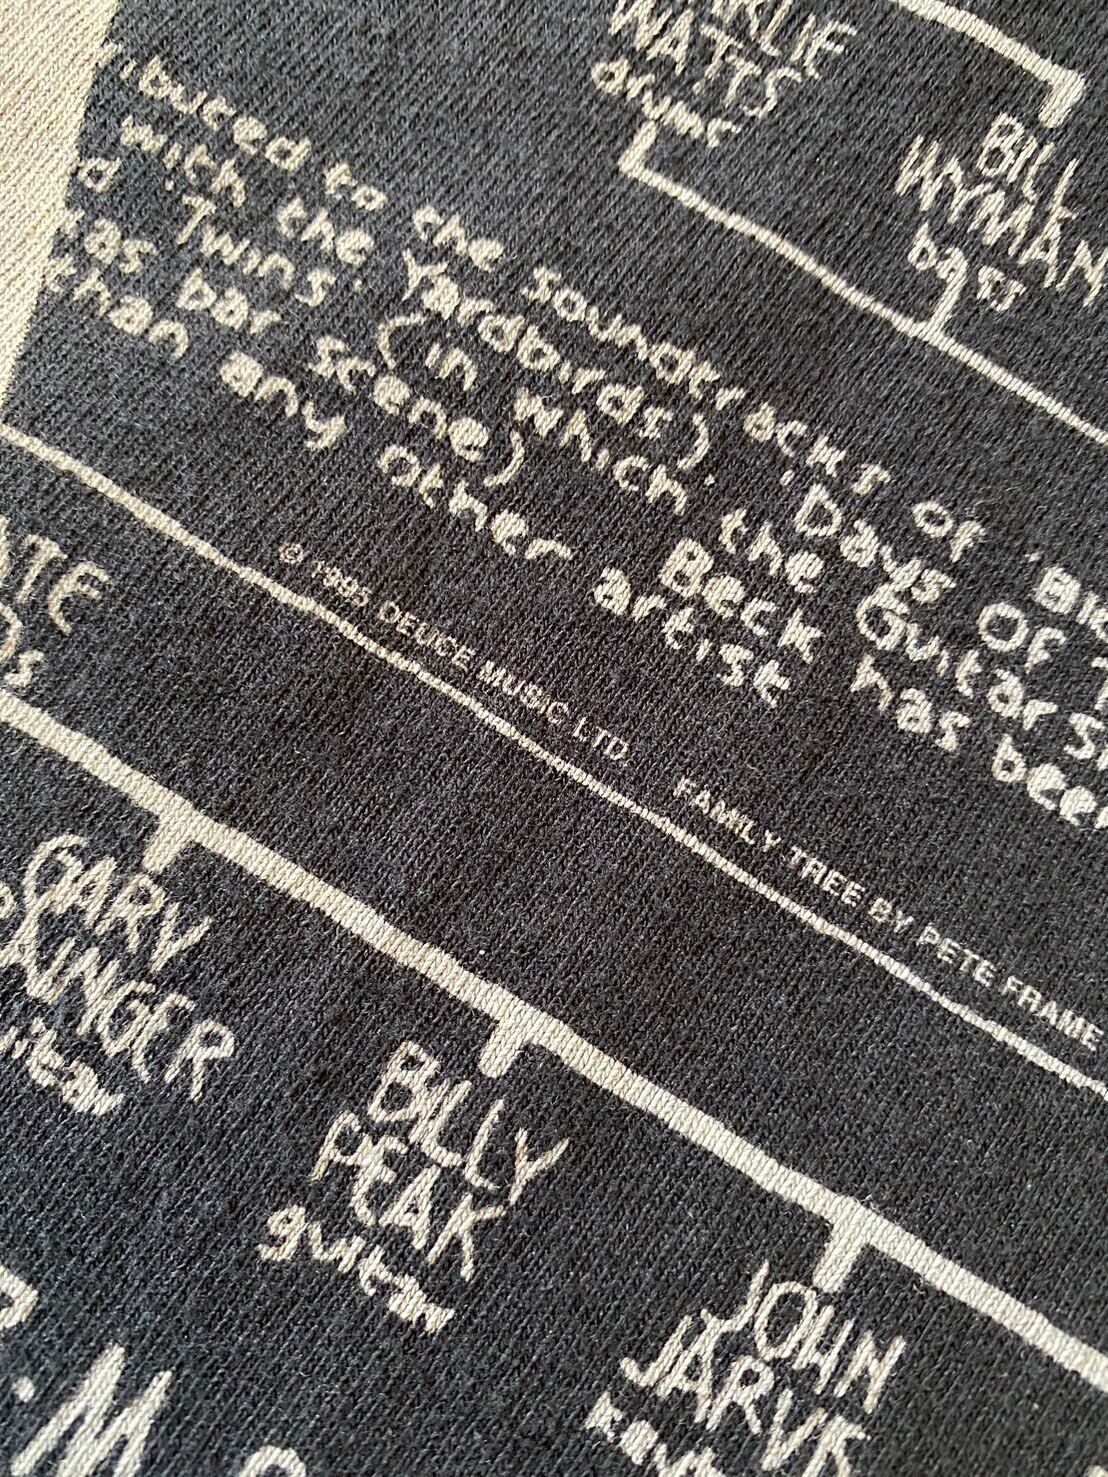 WATTS
drums
BILL
WYMAN
bass
buted to the soundtracks of
with the Yardbirds), 'Days Of
Twins' (in which the Guitar
bar scene) Beck has been
than any other artist
© 1995 DEUCE MUSIC LTD FAMILY TREE BY PETE FRAME
GARY
guitar
BILLY
PEAK
guitar
JOHN
JARVIS